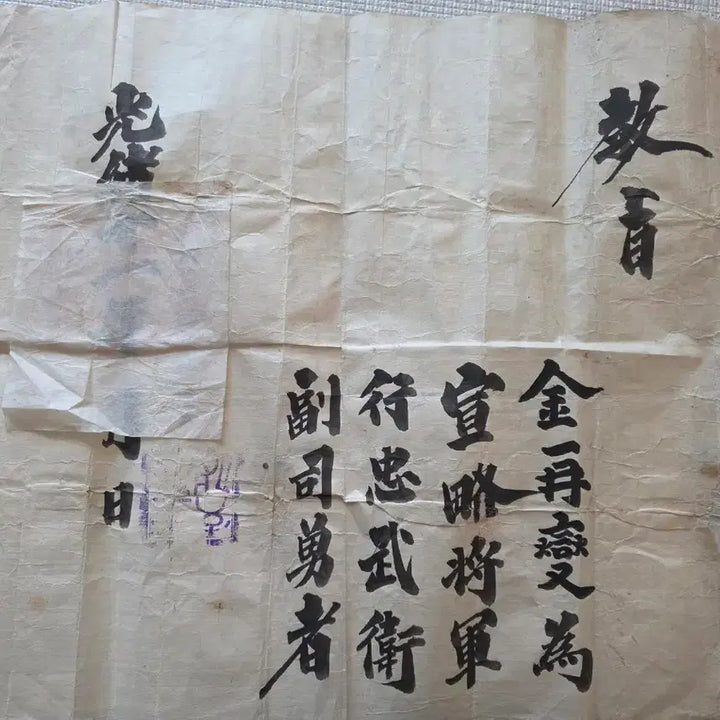 敎旨
金再燮為
宣略將軍
行忠武衛
副司勇者
光緖 月日